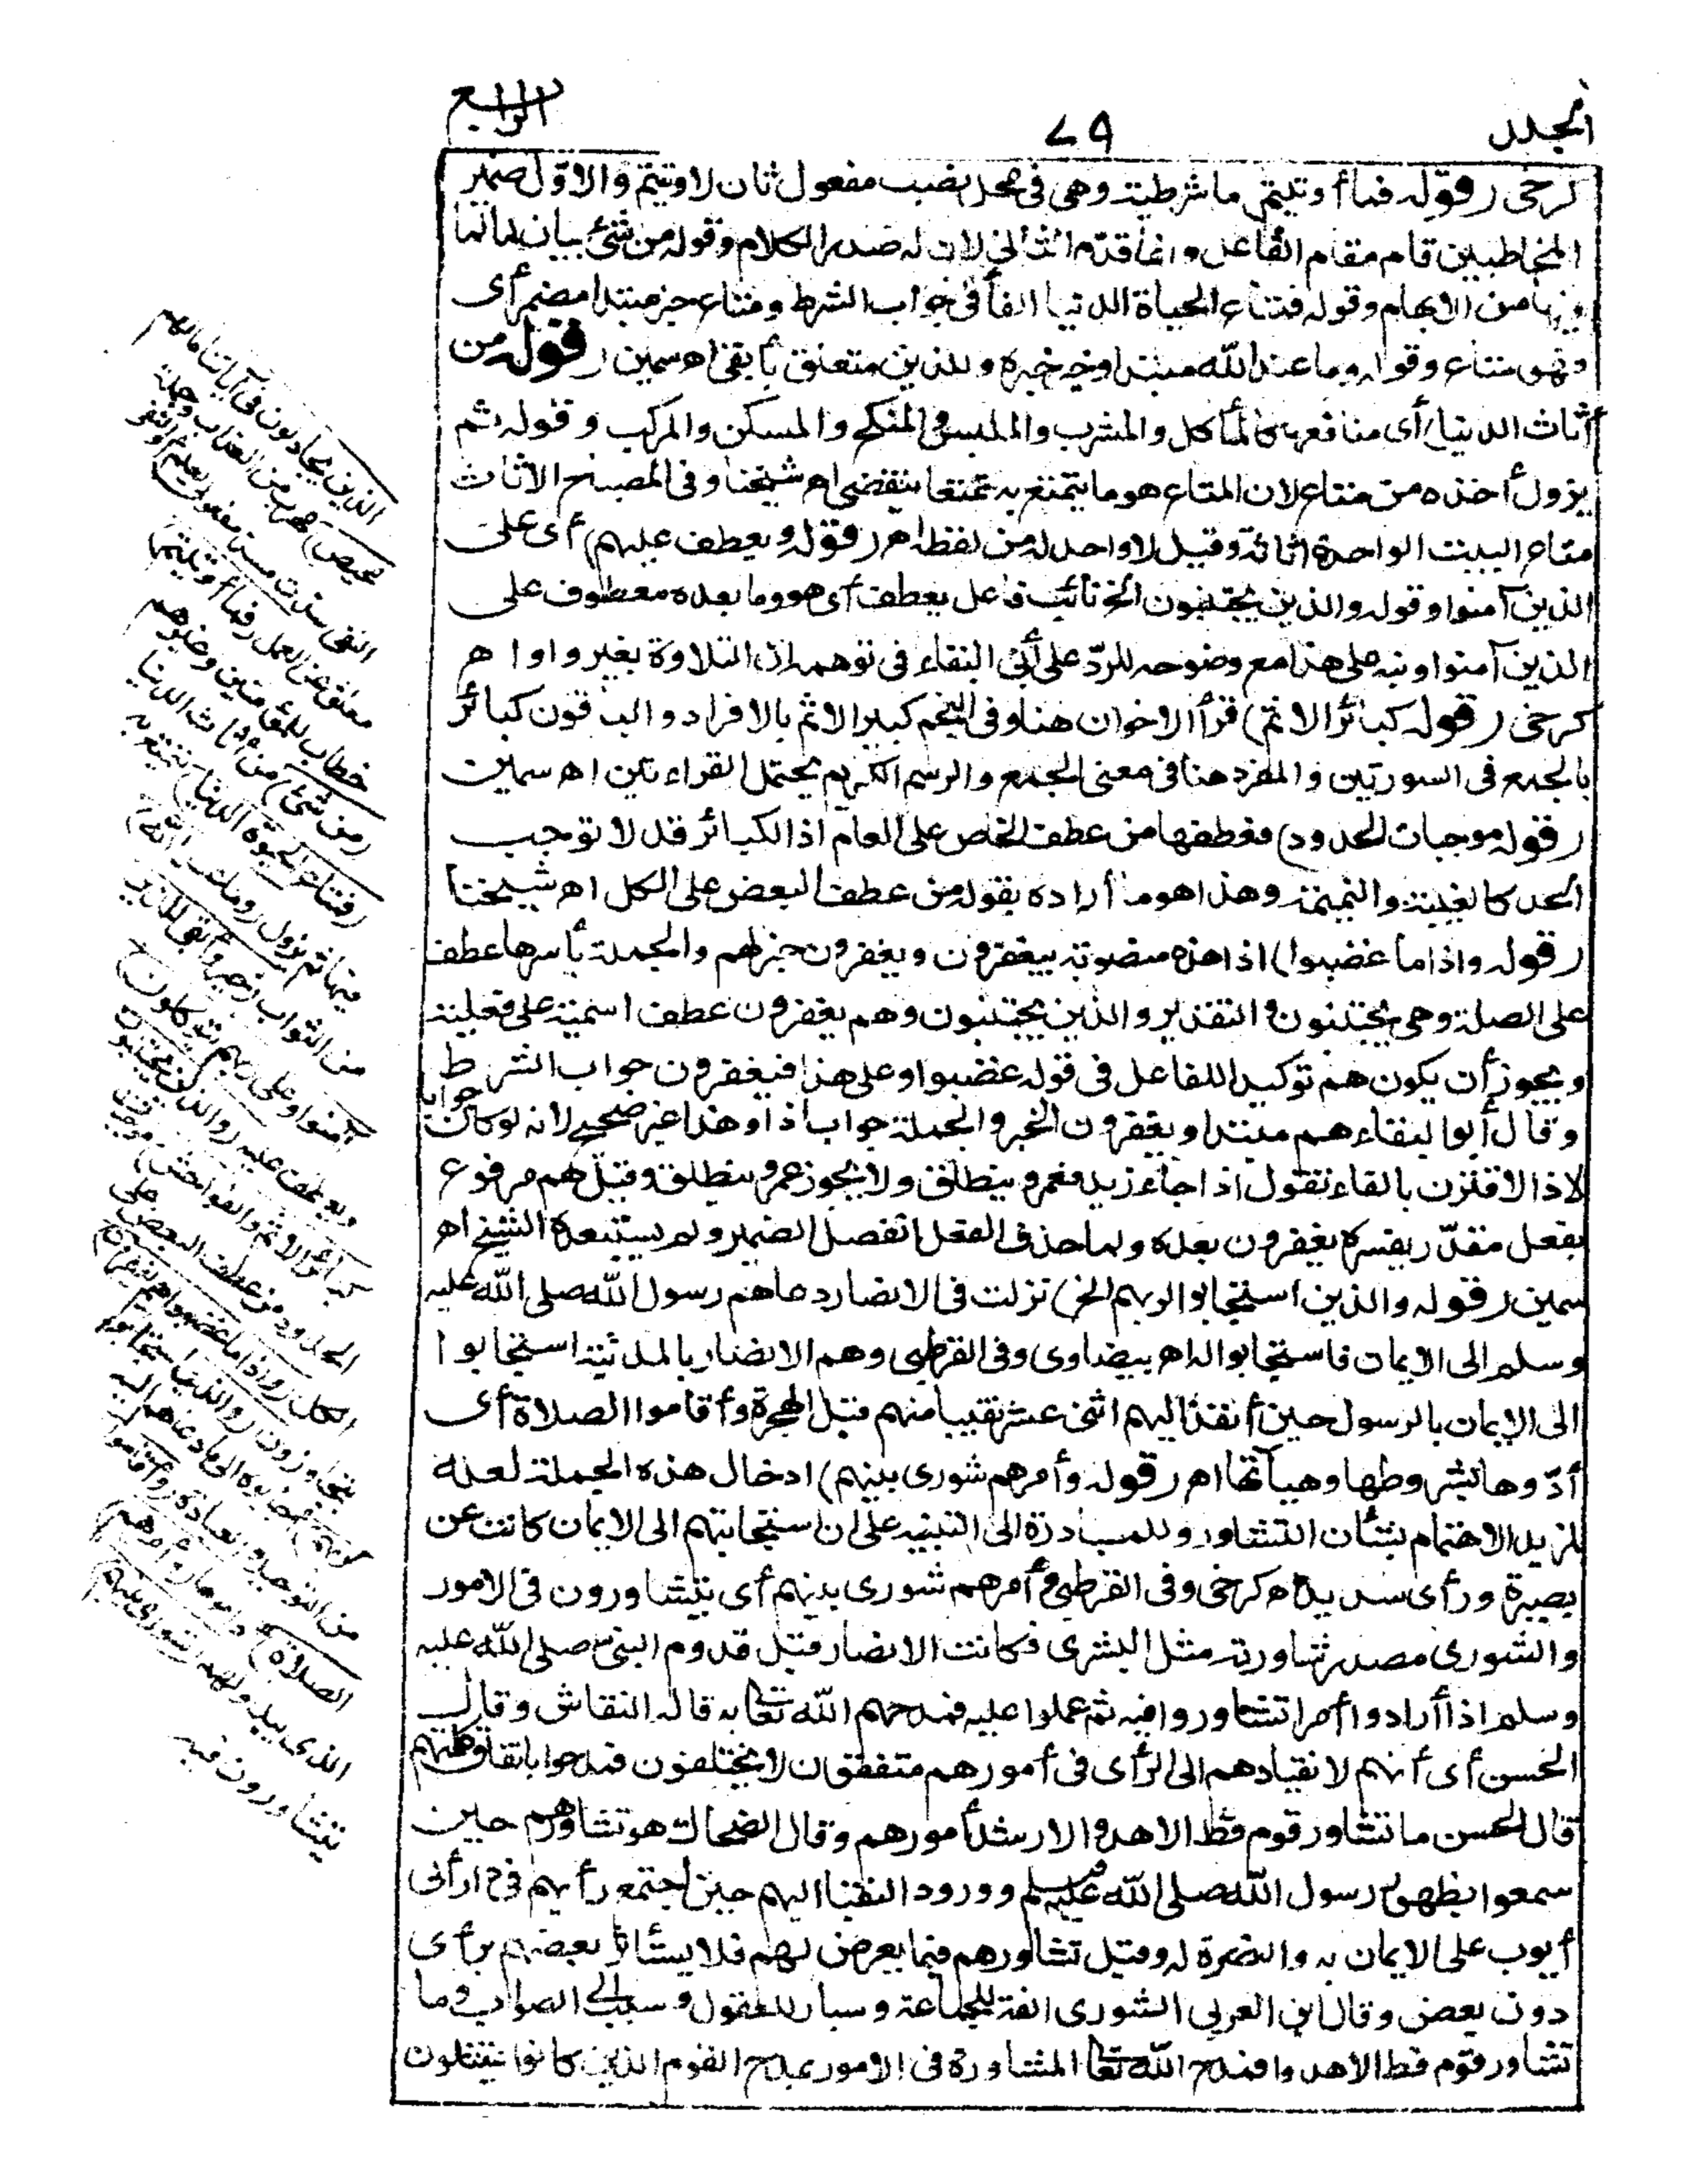 المجلد
٧٩
الرابع
كرخى (قوله فما أوتيتم) ما شرطية وهى فى محل نصب مفعول ثان لاوتيتم والاول ضمير
المخاطبين قام مقام الفاعل وانما قدم الثانى لان له صدر الكلام وقوله من شئ بيان لما لما
فيها من الابهام وقوله فمتاع الحياة الدنيا الفأ فى جواب الشرط ومتاع خبر مبتدا مضمر أى
فهو متاع وقوله وما عند الله مبتدا وخير خبره وللذين متعلق بأبقى اه سمين (قوله من
أثاث الدنيا) أى منافعها كالمأكل والمشرب والملبس والمنكح والمسكن والمركب وقوله ثم
يزول أخذه من متاع لان المتاع هو ما يتمتع به تمتعا ينقضى اه شيخنا وفى المصباح الاثاث
متاع البيت الواحدة اثاثة وقيل لا واحد له من لفظه اه (قوله ويعطف عليهم) أى على
الذين آمنوا وقوله والذين يجتنبون الخ نائب فاعل يعطف أى هو وما بعده معطوف على
الذين آمنوا ونبه على هذا مع وضوحه للرد على أبى البقاء فى توهمه ان التلاوة بغير واو ا ه
كرخى (قوله كبائر الاثم) قرأ الاخوان هنا وفى النجم كبير الاثم بالافراد والباقون كبائر
بالجمع فى السورتين والمفرد هنا فى معنى الجمع والرسم الكريم يحتمل القراءتين اه سمين
(قوله موجبات الحدود) فعطفها من عطف الخاص على العام اذ الكبائر قد لا توجب
الحد كالغيبة والنميمة وهذا هو ما أراده بقوله من عطف البعض على الكل اه شيخنا
(قوله واذا ما غضبوا) اذا هذه منصوبة بيغفرون ويغفرون خبر لهم والجملة بأسرها عطف
على الصلة وهى يجتنبون والتقدير والذين يجتنبون وهم يغفرون عطف اسمية على فعلية
ويجوز أن يكون هم توكيدا للفاعل فى قوله غضبوا وعلى هذا فيغفرون جواب الشرط
وقال أبو البقاء هم مبتدا ويغفرون الخبر والجملة جواب اذا وهذا غير صحيح لانه لو كان جوابا
لاذا لاقترن بالفاء نقول اذا جاء زيد فعمرو ينطلق ولا يجوز عمرو ينطلق وقيل هم مرفوع
بفعل مقدر يفسره يغفرون بعده ولما حذف الفعل انفصل الضمير ولم يستبعده الشيخ اه
سمين (قوله والذين استجابوا لربهم الخ) نزلت فى الانصار دعاهم رسول الله صلى الله عليه
وسلم الى الايمان فاستجابوا له اه بيضاوى وفى القرطبى وهم الانصار بالمدينة استجابوا
الى الايمان بالرسول حين أنفذ اليهم اثنى عشر نقيبا منهم قبل الهجرة وأقاموا الصلاة أى
أدوها بشروطها وهيآتها اه (قوله وأمرهم شورى بينهم) ادخال هذه الجملة لعله
لمزيد الاهتمام بشأن التشاور وللمبادرة الى التنبيه على ان استجابتهم الى الايمان كانت عن
بصيرة ورأى سديد اه كرخى وفى القرطبى وأمرهم شورى بينهم أى يتشاورون فى الامور
والشورى مصدر شاورته مثل البشرى فكانت الانصار قبل قدوم النبى صلى الله عليه
وسلم اذا أرادوا أمرا تشاوروا فيه ثم عملوا عليه فمدحهم الله تعالى به قاله النقاش وقال
الحسن أى أنهم لانقيادهم الى الرأى فى أمورهم متفقون لا يختلفون فمدحوا باتفاق كلمتهم
قال الحسن ما تشاور قوم قط الا هدوا لارشد أمورهم وقال الضحاك هو تشاورهم حين
سمعوا بظهور رسول الله صلى الله عليه وسلم وورود النقبا اليهم حين اجتمع رأيهم فى دار أبى
أيوب على الايمان به والنصرة له وقيل تشاورهم فيما يعرض لهم فلا يستأثر بعضهم برأى
دون بعض وقال ابن العربى الشورى الفة للجماعة وسبار للعقول وسبب الى الصواب وما
تشاور قوم قط الا هدوا فمدح الله تعالى المشاورة فى الامور بمدح القوم الذين كانوا يمتثلون
الذين يجادلون فى آياتنا ما لهم
من محيص) مهرب من العذاب وجملة
النفى سدت مسد مفعولى يعلم والنفى
معلق عن العمل (فما أوتيتم)
خطاب للمؤمنين وغيرهم
(من شئ) من أثاث الدنيا
(فمتاع الحيوة الدنيا) يتمتع به
فيها ثم يزول (وما عند الله)
من الثواب (خير وأبقى للذين
آمنوا وعلى ربهم يتوكلون)
ويعطف عليه (والذين يجتنبون
كبائر الاثم والفواحش) موجبات
الحدود من عطف البعض على
الكل (واذا ما غضبوا هم يغفرون)
يتجاوزون (والذين استجابوا
لربهم) أجابوه الى ما دعاهم اليه
من التوحيد والعبادة (وأقاموا
الصلاة) داوموها (وأمرهم)
الذى يبدو لهم (شورى بينهم)
يتشاورون فيه